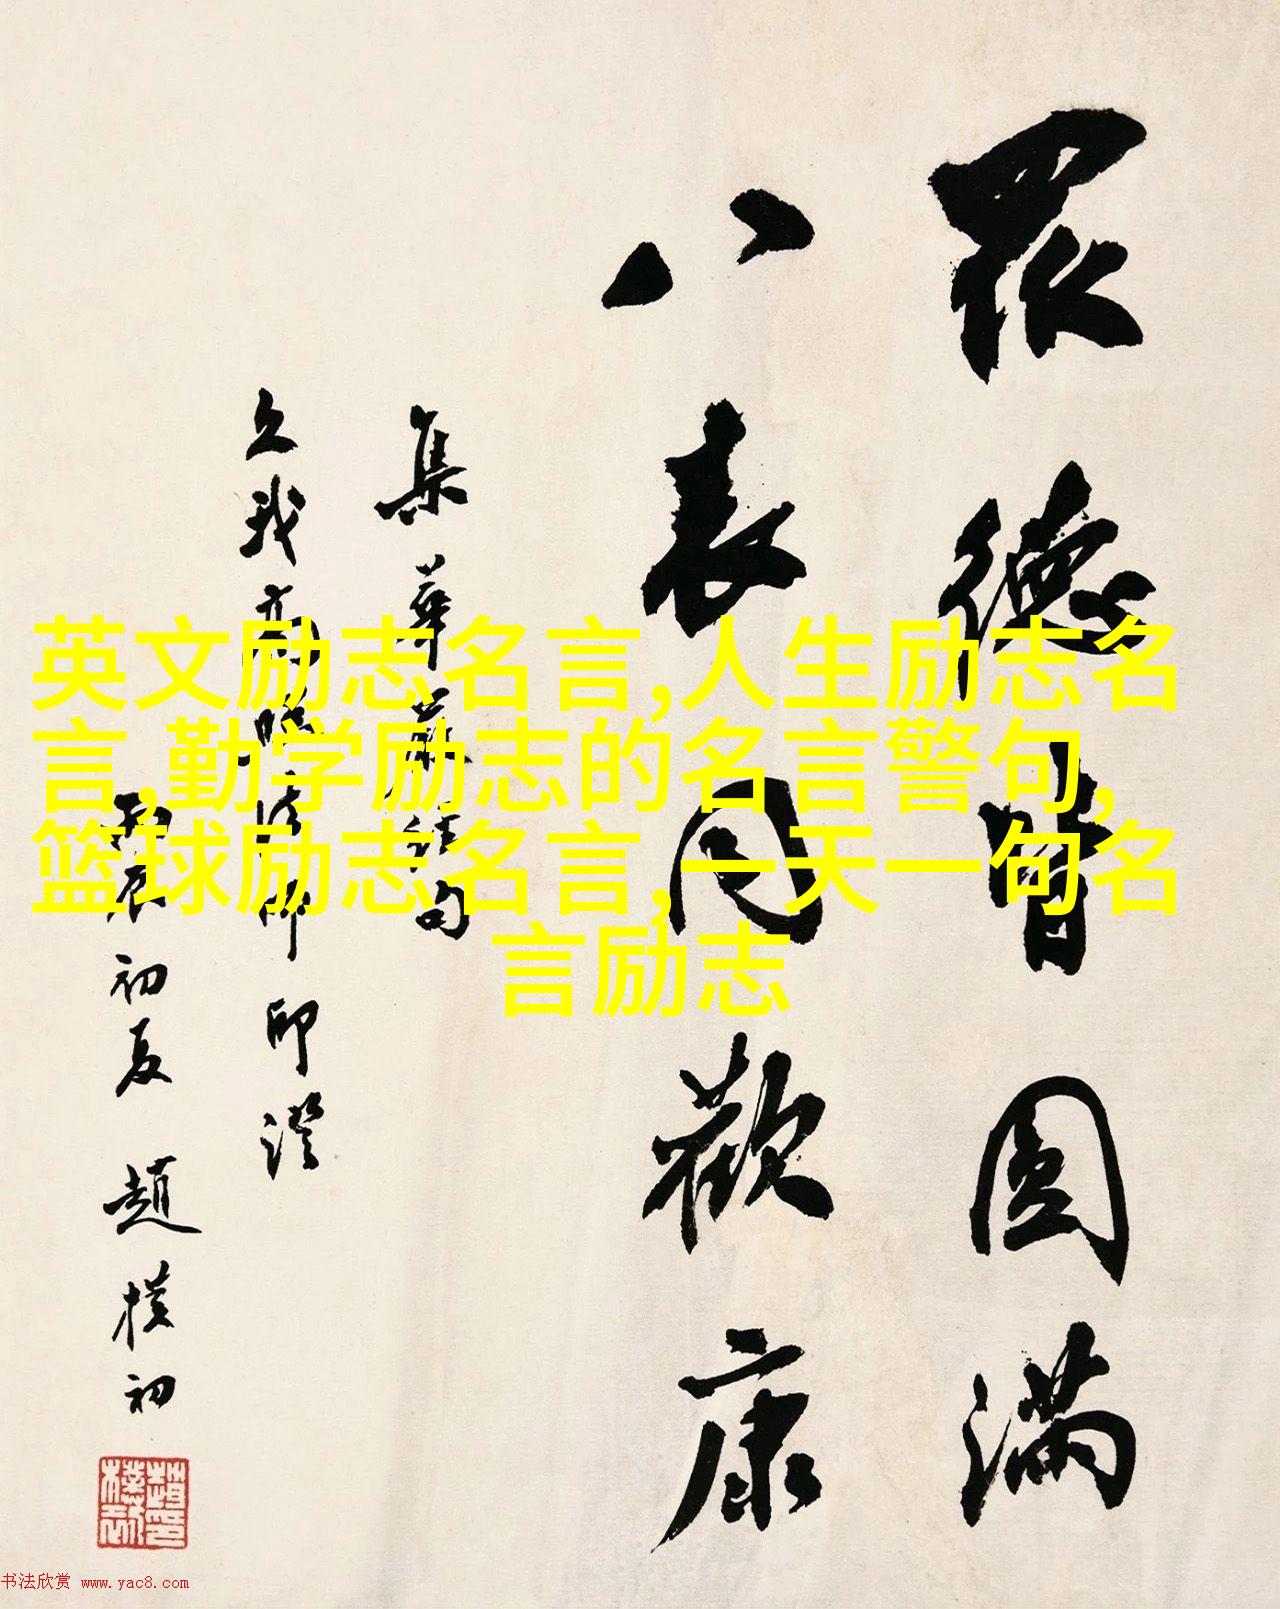 眾德皆圓滿
八表同歡康
集華嚴經句
久我高 法師印證
丙辰初夏 趙樸初
英文励志名言,人生励志名
言,勤学励志的名言警句,
篮球励志名言,一天一句名
言励志
书法欣赏 www.yac8.com